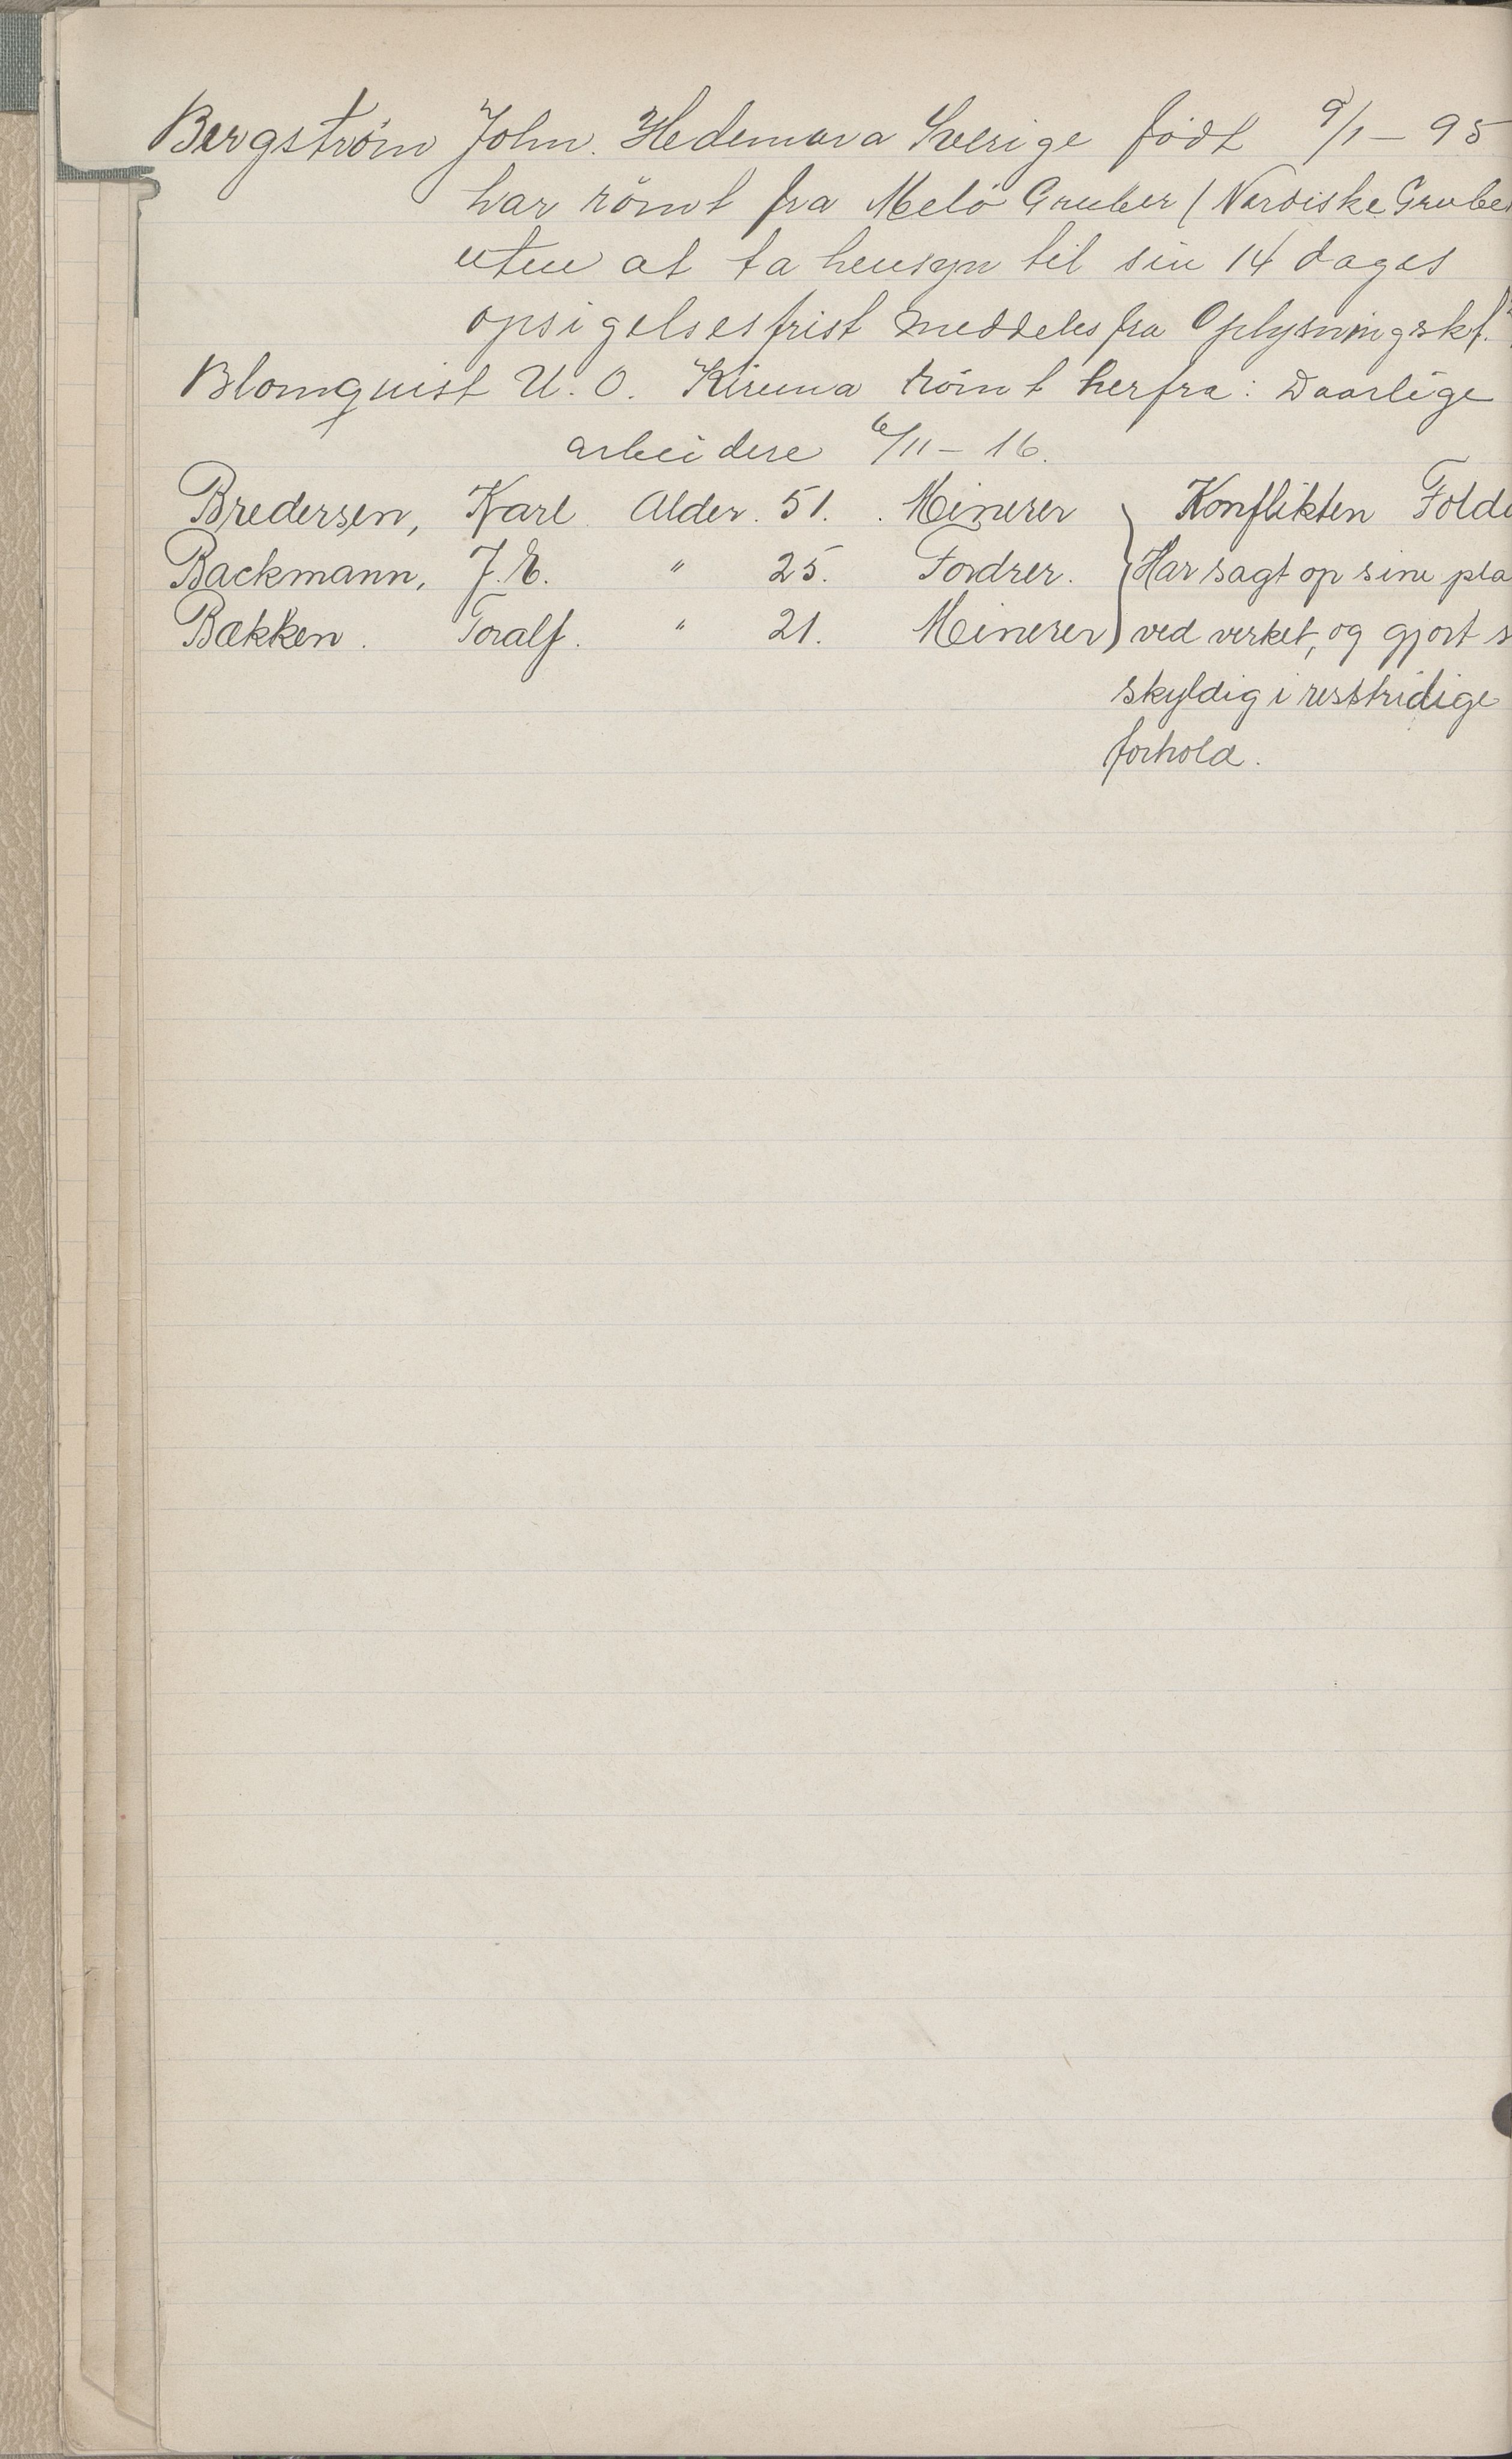 Bergström John. Hedemora Sverige födt 9/1 - 95
har römt fra Melö Gruber (Nordiske Grube
uten at ta hensyn til sin 14 dages
opsigelsesfrist meddeles fra Oplysningskt.
Blomquist U. O. Kiruna römt herfra: Daarlige
arbeidere 6/11 - 16.
Bredersen, Karl Alder. 51. Minerer } Konflikten Folda
Backmann, J. E. " 25. Fordrer. Har sagt op sine pla
Bækken. Toralf. " 21. Minerer ved verket, og gjort s
skyldig i resstridige
forhold.